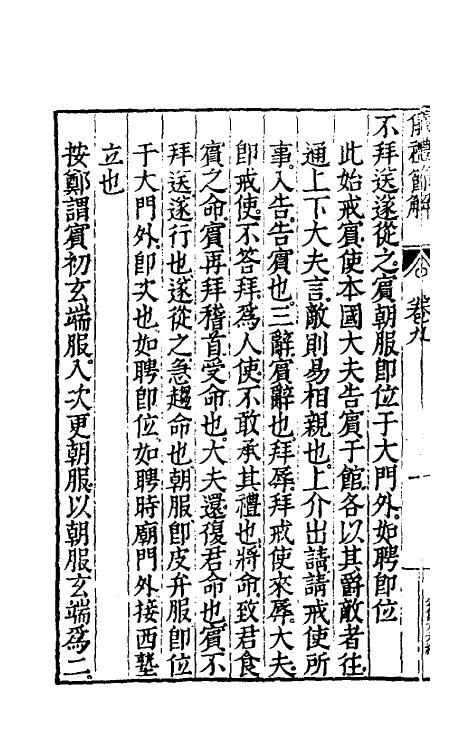 儀禮節解
卷九
不拜送遂從之賓朝服即位于大門外如聘即位
此始戒賓使本國大夫告賓于館各以其爵敵者往
通上下大夫言敵則易相親也上介出請請戒使所
事入告告賓也三辭賓辭也拜辱拜戒使來辱大夫
即戒使不答拜爲人使不敢承其禮也將命致君食
賓之命賓再拜稽首受命也大夫還復君命也賓不
拜送遂行也遂從之急趨命也朝服即皮弁服即位
于大門外即次也如聘即位如聘時廟門外接西塾
立也
按鄭謂賓初玄端服入次更朝服以朝服玄端爲二